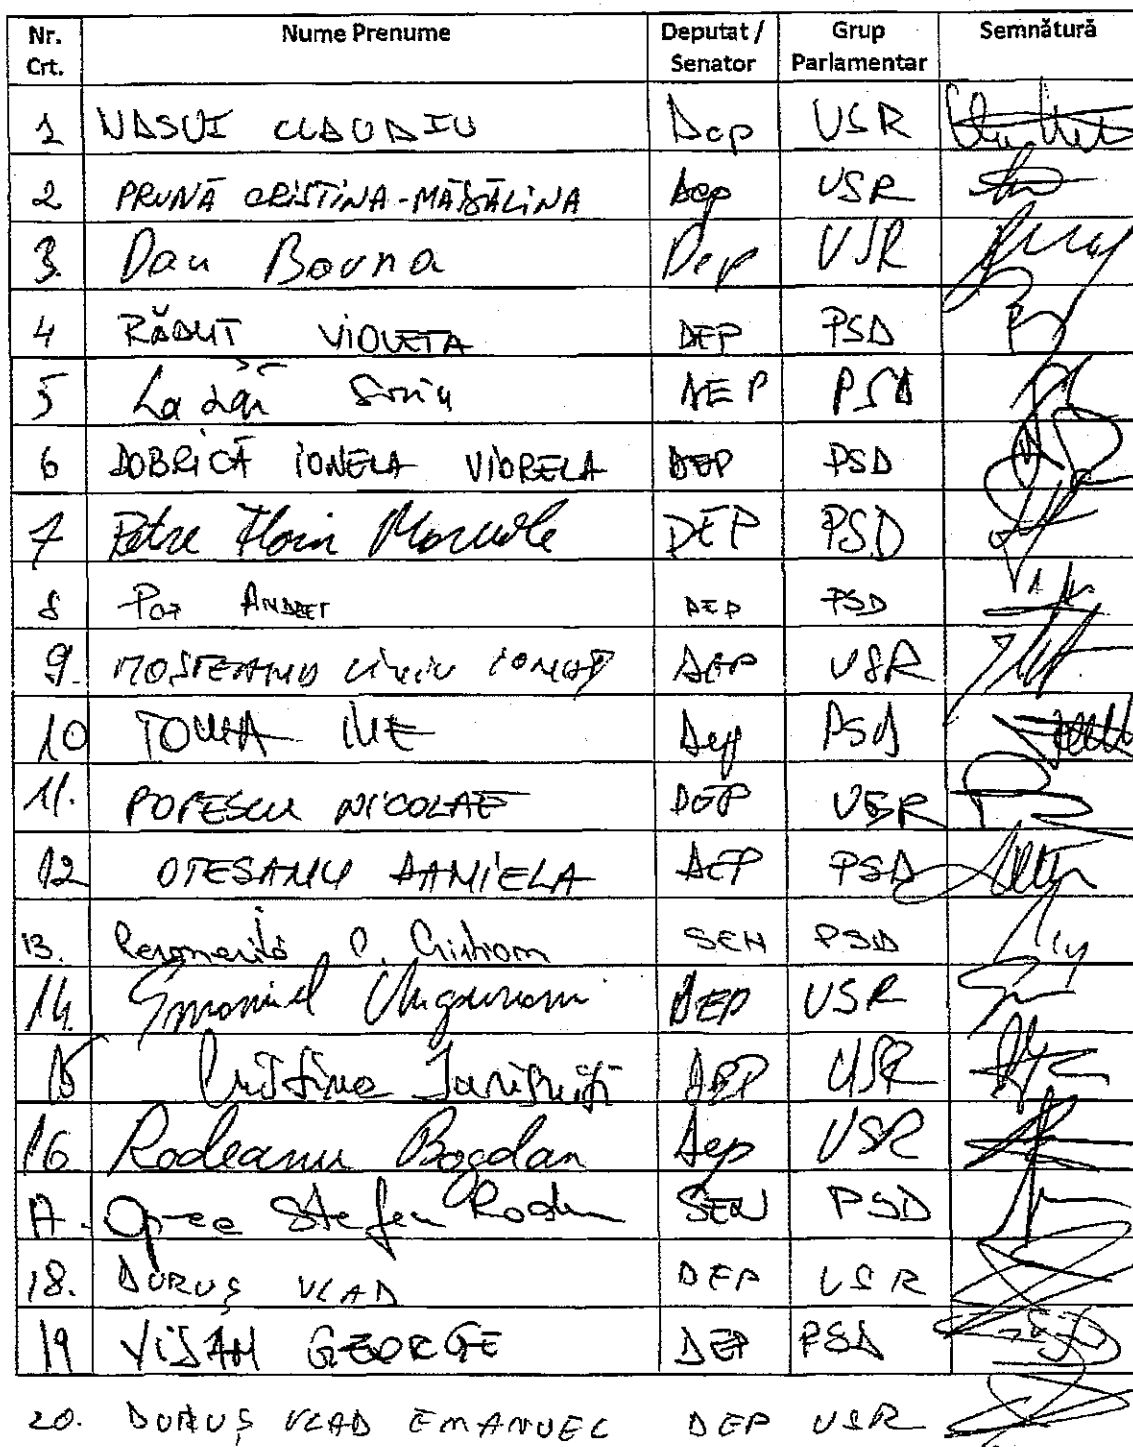 Nr. Crt. Nume Prenume Deputat / Senator Grup Parlamentar Semnătură
1 NASUI CLAUDIU Dep USR
2 PRUNĂ CRISTINA-MĂDĂLINA Dep USR
3. Dan Barna Dep USR
4 RĂDUT VIOLETA DEP PSD
5 Lazăr Sorin DEP PSD
6 DOBRICĂ IONELA VIORELA DEP PSD
7 Petre Florin Manole DEP PSD
8 Pop ANDREI DEP PSD
9. MOSTEANU LIVIU IONUT DEP USR
10 TOMA ILIE Dep PSD
11. POPESCU NICOLAE DEP USR
12 OTESANU DANIELA DEP PSD
13. C. Cristian SEN PSD
14. Emanuel Ungureanu DEP USR
15 Cristina DEP USR
16 Rodeanu Bogdan Dep USR
17. Oprea Stefan Radu SEN PSD
18. DURUȘ VLAD DEP USR
19 VIȘAN GEORGE DEP PSD
20. DURUȘ VLAD EMANUEL DEP USR